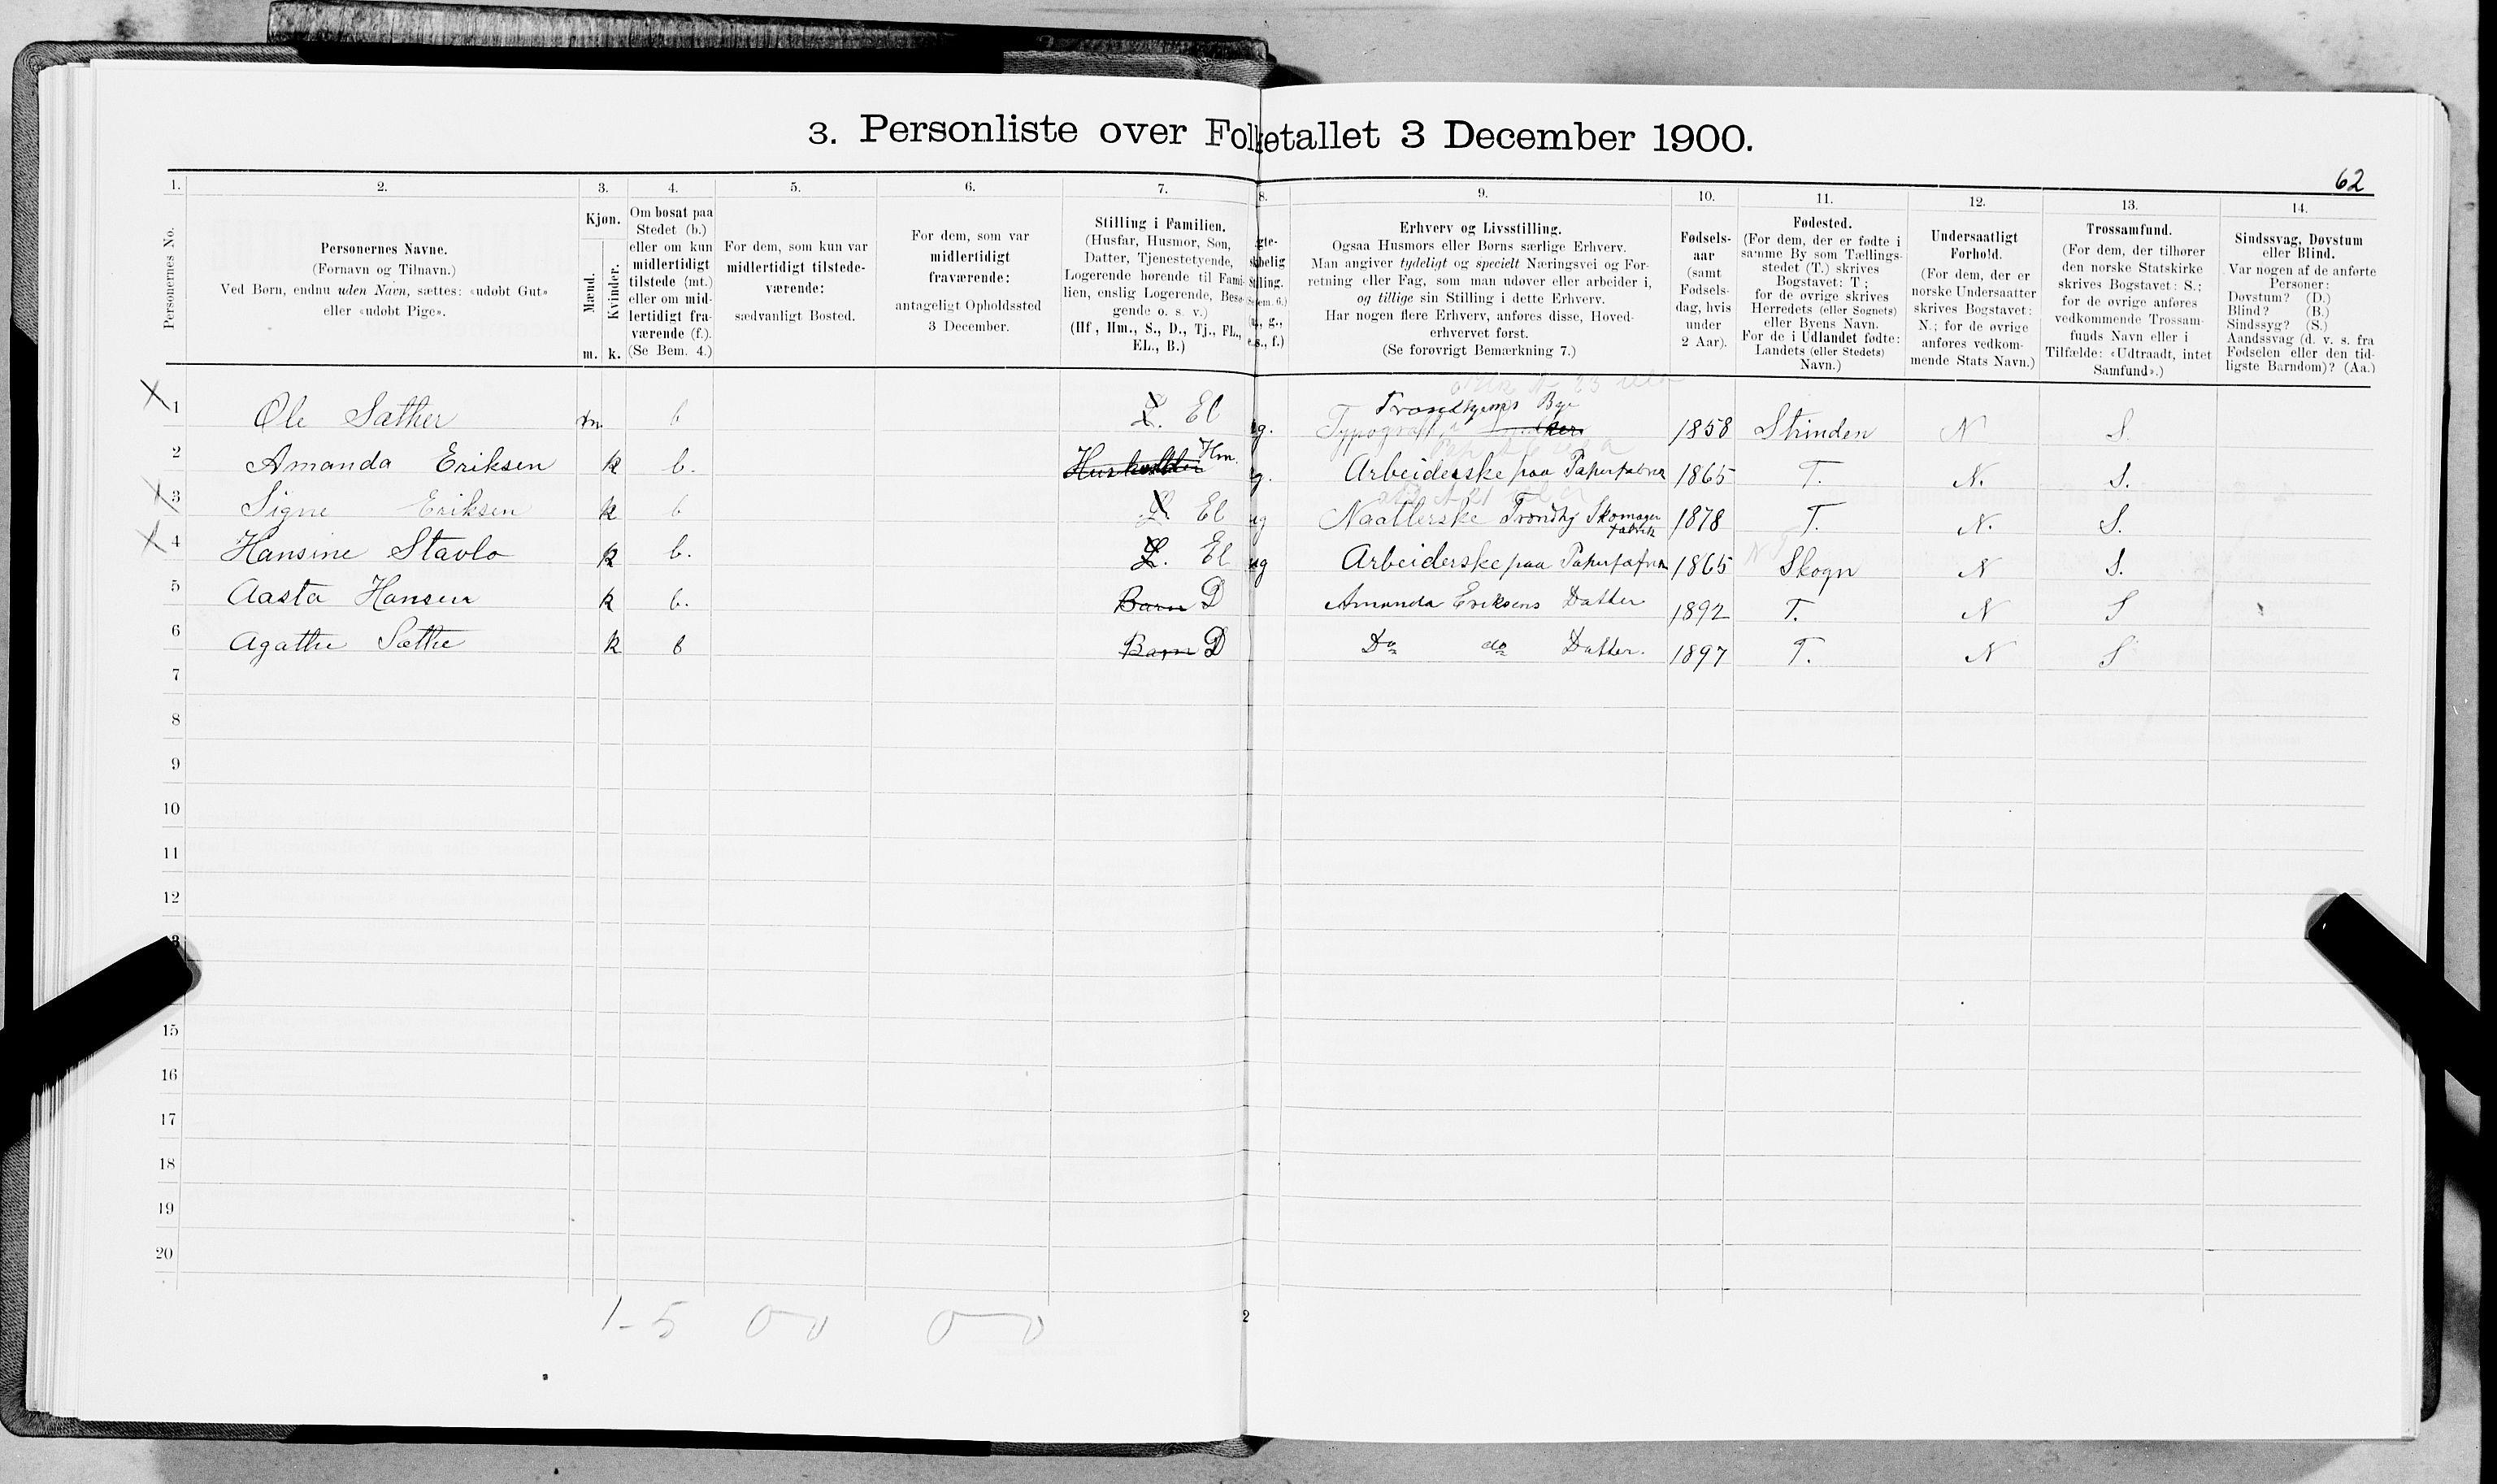 3. Personliste over Folketallet 3 December 1900.
62
1. 2. 3. 4. 5. 6. 7. 8. 9. 10. 11. 12. 13. 14.
Personernes No.
Personernes Navne.
(Fornavn og Tilnavn.)
Ved Børn, endnu uden Navn, sættes: «udøbt Gut»
eller «udøbt Pige».
Kjøn.
Mænd.
Kvinder.
m. k.
Om bosat paa
Stedet (b.)
eller om kun
midlertidigt
tilstede (mt.)
eller om mid-
lertidigt fra-
værende (f.).
(Se Bem. 4.)
For dem, som kun var
midlertidigt tilstede-
værende:
sædvanligt Bosted.
For dem, som var
midlertidigt
fraværende:
antageligt Opholdssted
3 December.
Stilling i Familien.
(Husfar, Husmor, Søn,
Datter, Tjenestetyende,
Logerende hørende til Fami-
lien, enslig Logerende, Besø-
gende o. s. v.)
(Hf, Hm., S., D., Tj., FL.,
EL., B.)
gte-
belig
illing.
em. 6.)
g.,
s., f.)
Erhverv og Livsstilling.
Ogsaa Husmors eller Børns særlige Erhverv.
Man angiver tydeligt og specielt Næringsvei og For-
retning eller Fag, som man udøver eller arbeider i,
og tillige sin Stilling i dette Erhverv.
Har nogen flere Erhverv, anføres disse, Hoved-
erhvervet først.
(Se forøvrigt Bemærkning 7.)
Fødsels-
aar
(samt
Fødsels-
dag, hvis
under
2 Aar).
Fødested.
(For dem, der er fødte i
samme By som Tællings-
stedet (T.) skrives
Bogstavet: T;
for de øvrige skrives
Herredets (eller Sognets)
eller Byens Navn.
For de i Udlandet fødte:
Landets (eller Stedets)
Navn.)
Undersaatligt
Forhold.
(For dem, der er
norske Undersaatter
skrives Bogstavet:
N.; for de øvrige
anføres vedkom-
mende Stats Navn.)
Trossamfund.
(For dem, der tilhører
den norske Statskirke
skrives Bogstavet: S.;
for de øvrige anføres
vedkommende Trossam-
funds Navn eller i
Tilfælde: «Udtraadt, intet
Samfund».)
Sindssvag, Døvstum
eller Blind.
Var nogen af de anførte
Personer:
Døvstum? (D.)
Blind? (B.)
Sindssyg? (S.)
Aandssvag (d. v. s. fra
Fødselen eller den tid-
ligste Barndom)? (Aa.)
Trondhjems By
X 1 Ole Sæther m. b L. El ug. Typograf i 1858 Strinden N S.
2 Amanda Eriksen k b. Husholder Hm. g. Arbeiderske paa Papirfabrik 1865 T. N. S.
X 3 Signe Eriksen k b L. El ug Naatlerske Trondhj Skomager fabrik 1878 T. N. S.
X 4 Hansine Stavlo k b. L. El ug Arbeiderske paa Papirfabrik 1865 Skogn N S.
5 Aasta Hansen k b. Barn D Amanda Eriksens Datter 1892 T. N S
6 Agathe Sæthe k b Barn D Do do Datter. 1897 T. N S
7
8
9
10
11
12
3
15
16
17
18
19
20
1-5 0 0 0 0
2